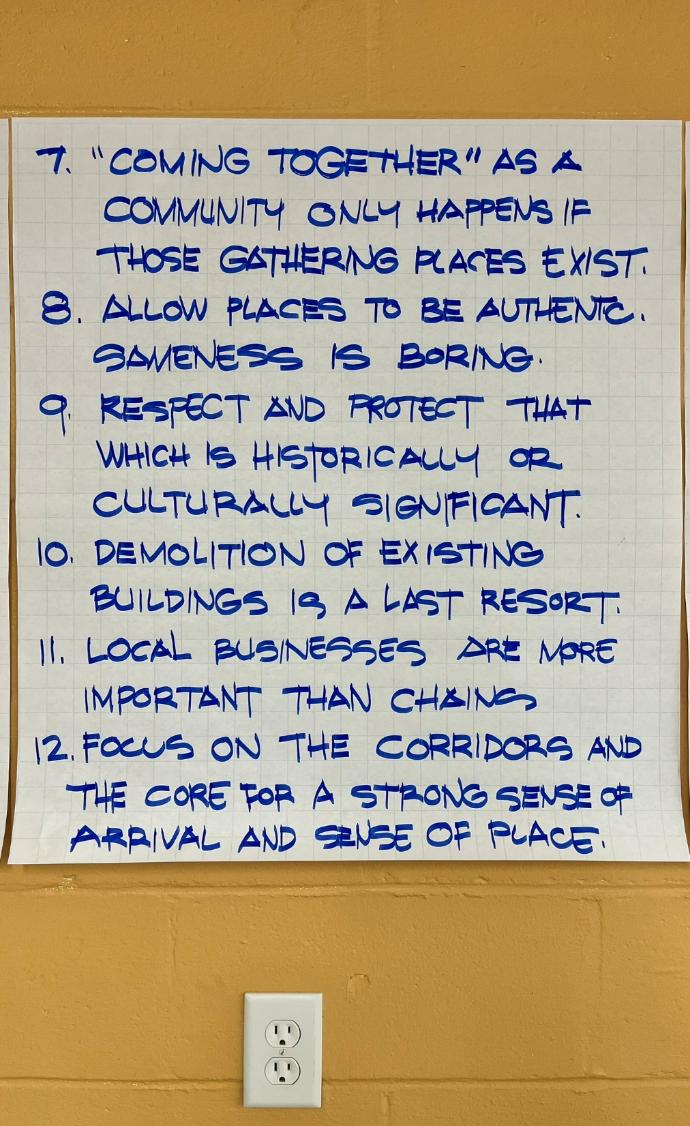 7. "COMING TOGETHER" AS A
COMMUNITY ONLY HAPPENS IF
THOSE GATHERING PLACES EXIST.
8. ALLOW PLACES TO BE AUTHENTIC.
SAMENESS IS BORING.
9. RESPECT AND PROTECT THAT
WHICH IS HISTORICALLY OR
CULTURALLY SIGNIFICANT.
10. DEMOLITION OF EXISTING
BUILDINGS IS A LAST RESORT.
11. LOCAL BUSINESSES ARE MORE
IMPORTANT THAN CHAINS
12. FOCUS ON THE CORRIDORS AND
THE CORE FOR A STRONG SENSE OF
ARRIVAL AND SENSE OF PLACE.